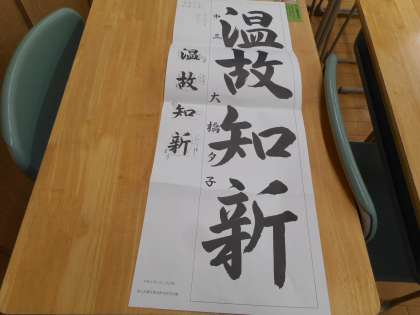 温故知新
中三
大橋夕子
温故知新